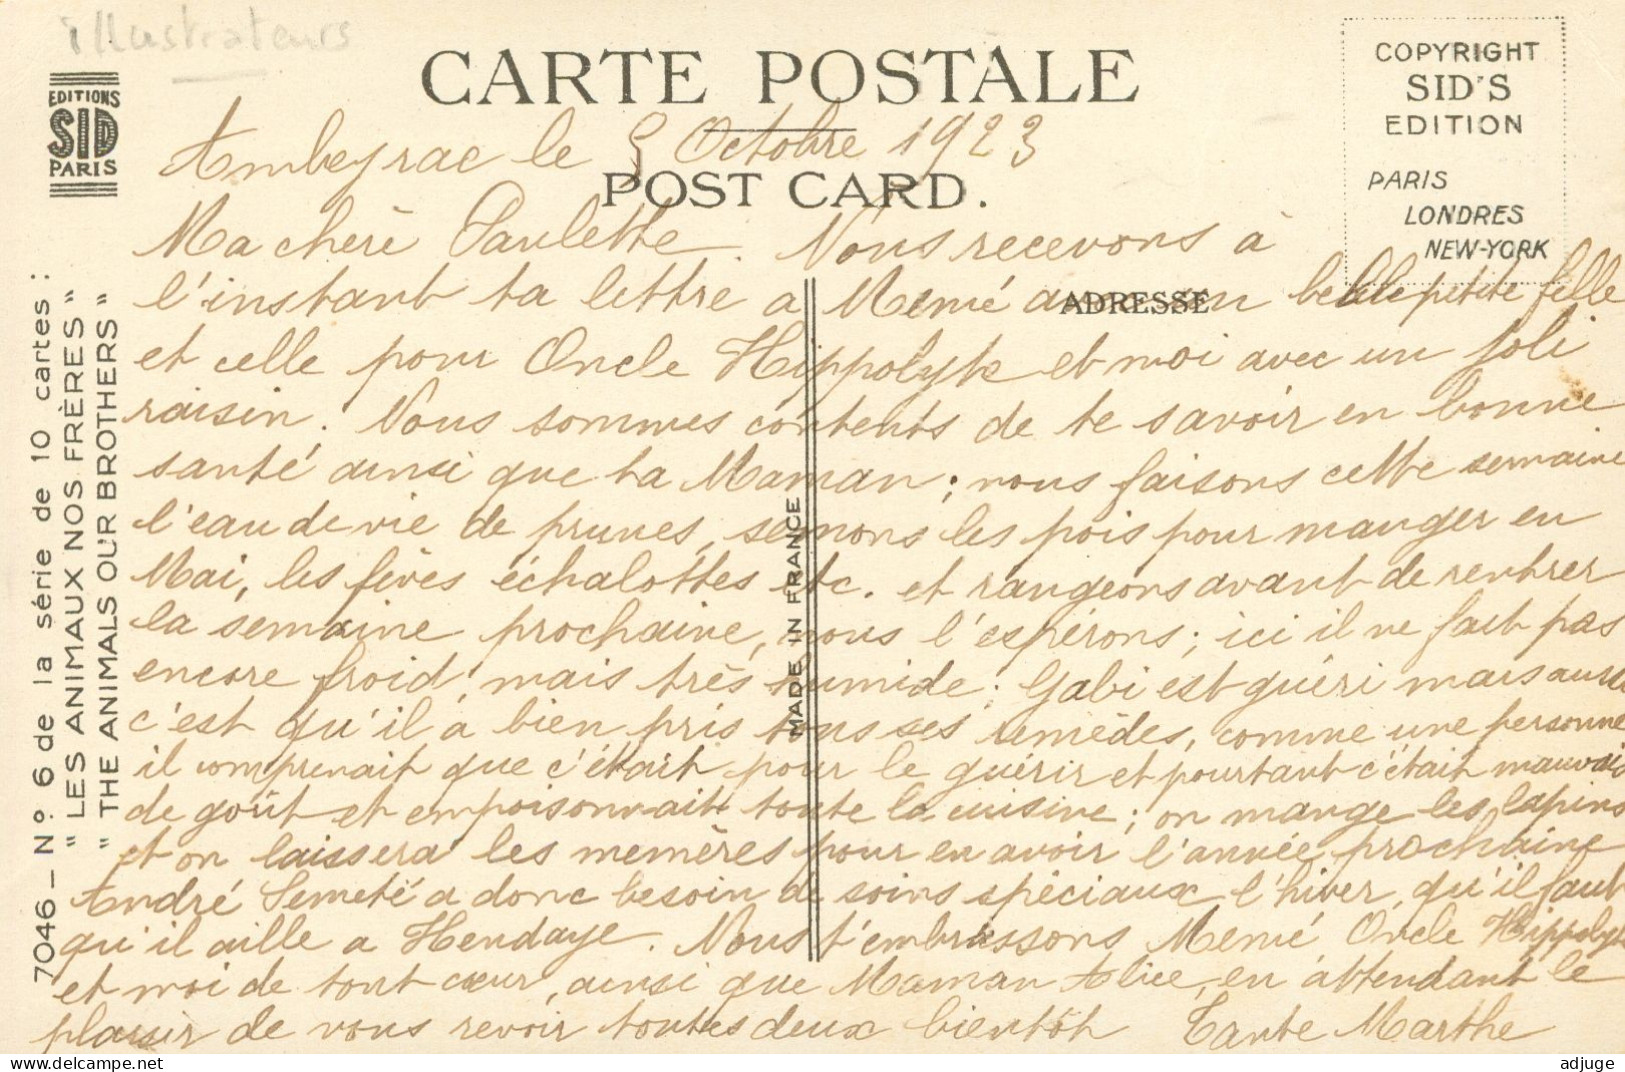 illustrateurs
EDITIONS
SID
PARIS
CARTE POSTALE
POST CARD.
COPYRIGHT
SID'S
EDITION
PARIS
LONDRES
NEW-YORK
ADRESSE
MADE IN FRANCE
7046 _ N° 6 de la série de 10 cartes :
" LES ANIMAUX NOS FRÈRES "
" THE ANIMALS OUR BROTHERS "
Ambeyrac le Octobre 1923
Ma chère Paulette. Nous recevons à
l'instant ta lettre a Memé avec un belle petite fille
et celle pour Oncle Hippolyte et moi avec un joli
raisin. Nous sommes contents de te savoir en bonne
santé ainsi que ta Maman; nous faisons cette semaine
l'eau de vie de prunes, semons les pois pour manger en
Mai, les fèves échalottes etc. et rangeons avant de rentrer
la semaine prochaine, nous l'espérons; ici il ne fait pas
encore froid, mais très humide; Gabi est guéri mais aussi
c'est qu'il a bien pris tous ses remèdes, comme une personne
il comprenait que c'était pour le guérir et pourtant c'était mauvais
de goût et empoisonnait toute la cuisine; on mange les lapins
et on laissera les memères pour en avoir l'année prochaine
André Semeté a donc besoin de soins spéciaux l'hiver, qu'il faut
qu'il aille a Hendaye. Nous t'embrassons Memé Oncle Hippolyte
et moi de tout cœur, ainsi que Maman Alice, en attendant le
plaisir de vous revoir toutes deux bientôt Tante Marthe
adjuge